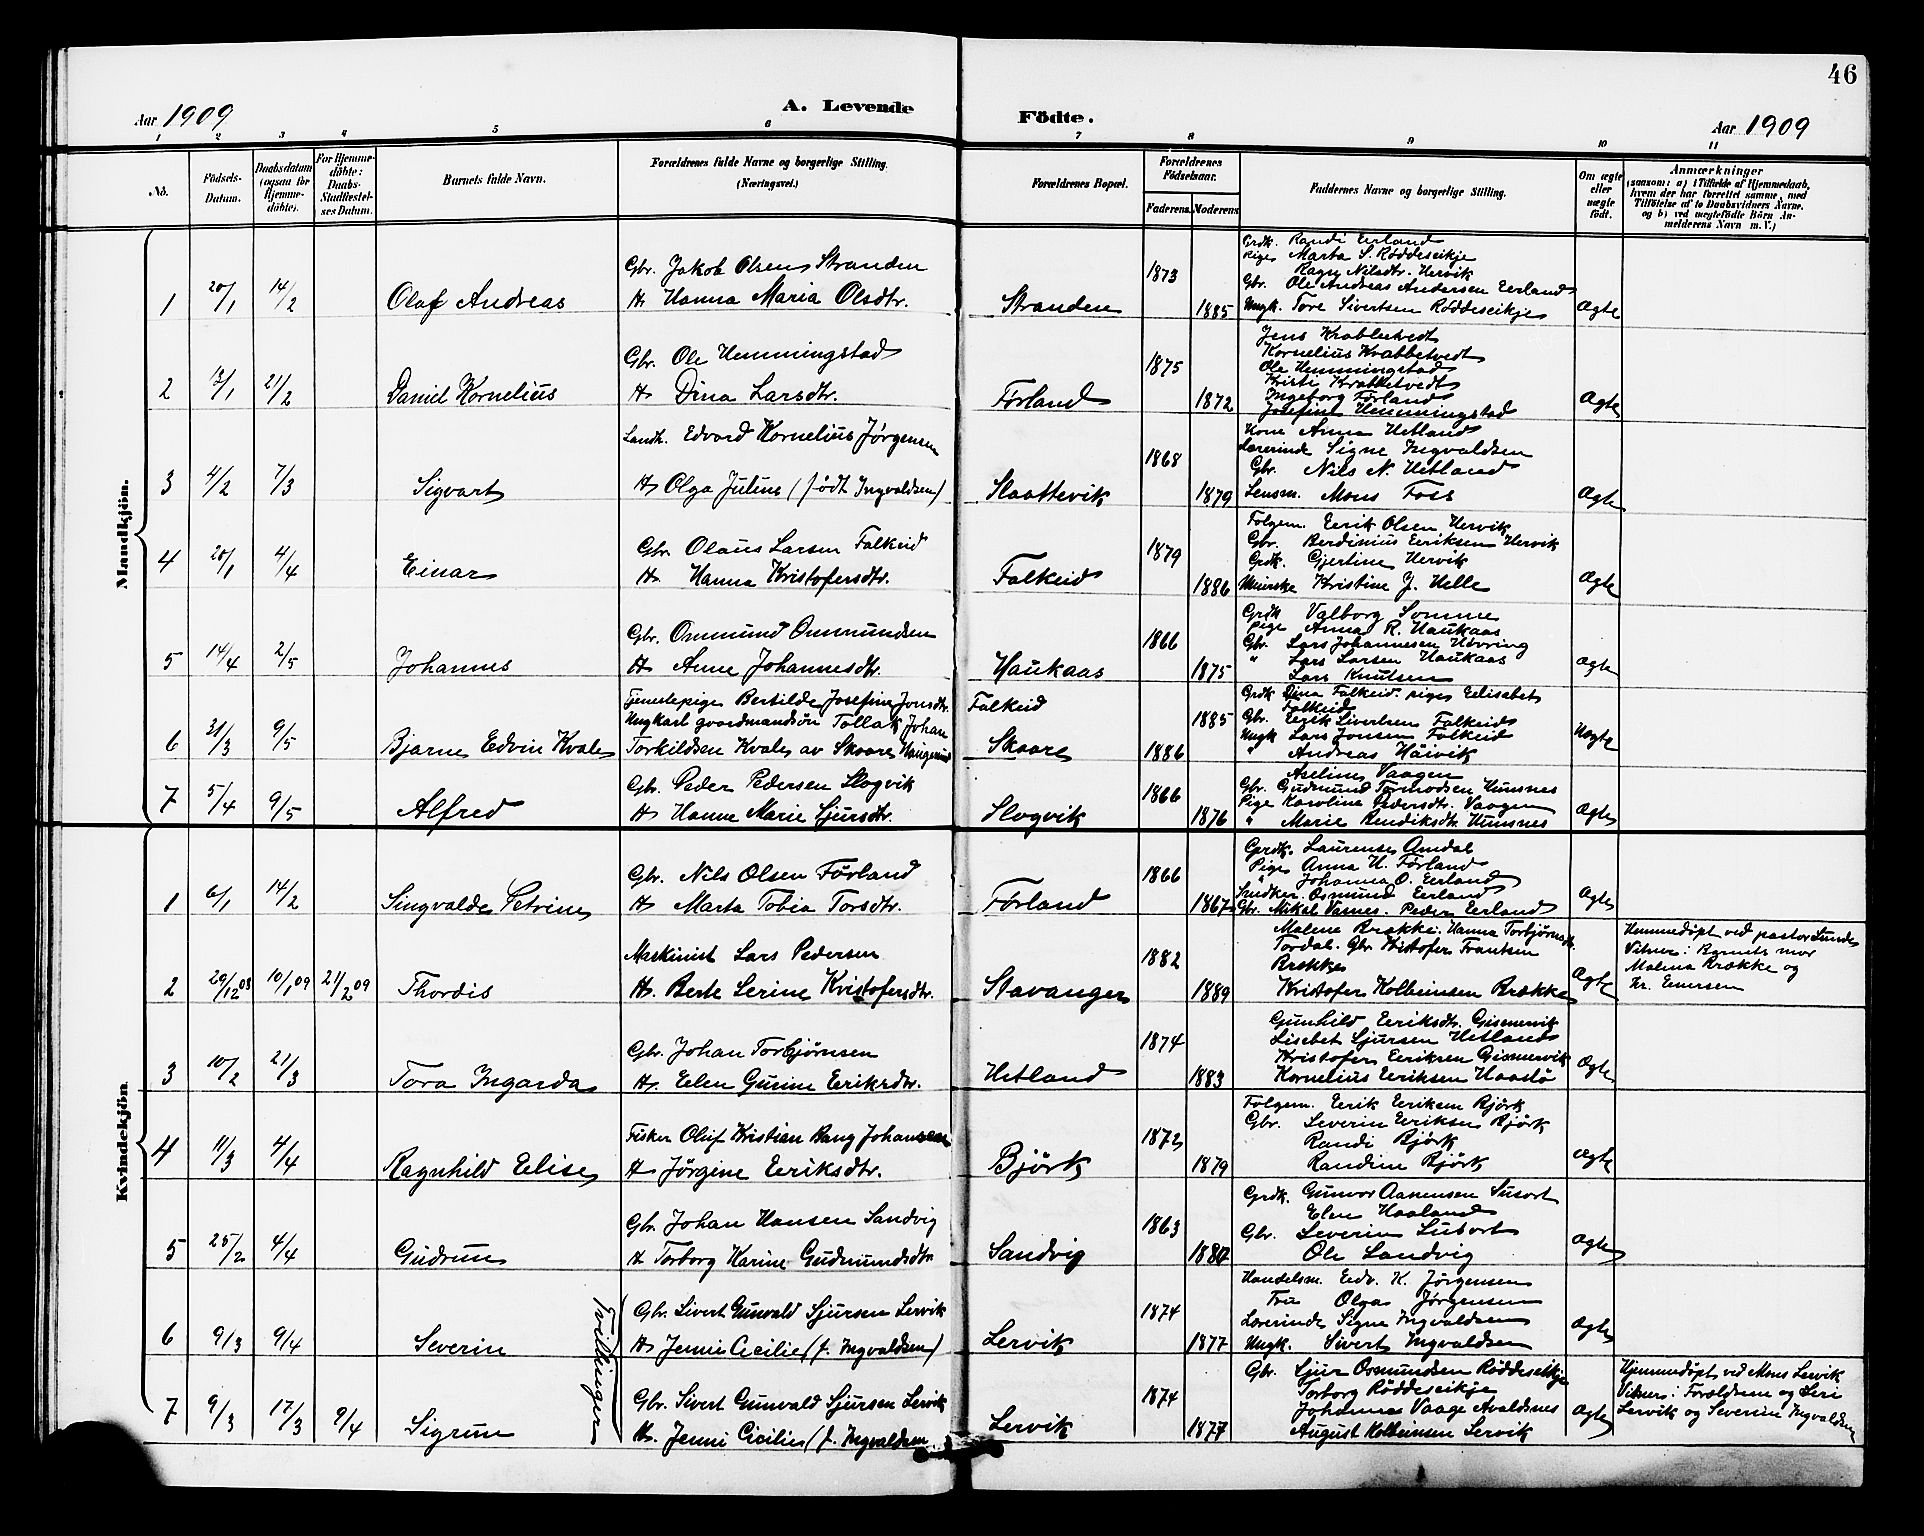 46
Aar 1909
A. Levende Födte.
Aar 1909
1 2 3 4 5 6 7 8 9 10 11
No.
Födsels-Datum.
Daabsdatum (ogsaa for Hjemme-döbte).
For Hjemme-döbte: Daabs-Stadfæstel-ses Datum.
Barnets fulde Navn.
Forældrenes fulde Navne og borgerlige Stilling. (Næringsvei.)
Forældrenes Bopæl.
Forældrenes Födselsaar.
Faderens. Moderens.
Faddernes Navne og borgerlige Stilling.
Om ægte eller uægte födt.
Anmærkninger
(saasom: a) i Tilfælde af Hjemmedaab,
hvem der har forrettet samme, med
Tilföielse af to Daabsvidners Navne,
og b) ved uægtefödte Börn An-
melderens Navn m. V.)
Mandkjön.
1 20/1 14/2 Olaf Andreas
Gbr. Jakob Olsen Stranden
H. Hanna Maria Olsdtr.
Stranden 1873 1885
Grdk. Randi Eerland
Pige Marta S. Røddeseikje
Ragn. Nilsdtr. Hervik
Gbr. Ole Andreas Andersen Eerland
Ungk. Tore Sivertsen Röddeseikje
Ægte
2 13/1 21/2 Daniel Kornelius
Gbr. Ole Hemmingstad
H. Dina Larsdtr.
Førland 1875 1872
Jens Krabbetvedt
Kornelius Krabbetvedt
Ole Hemmingstad
Kristi Krabbetvedt
Ingeborg Førland
Josefine Hemmingstad
Ægte
3 4/2 7/3 Sigvart
Landh. Edvard Kornelius Jørgensen
H. Olga Juline (født Ingvaldsen)
Slaattevik 1868 1879
Kone Anna Hetland
Lærerinde Signe Ingvaldsen
Gbr. Nils N. Hetland
Lensm. Mons Foss
Ægte
4 20/1 4/4 Einar
Gbr. Olaus Larsen Falkeid
H. Hanna Kristofersdtr.
Falkeid 1879 1886
Folgem. Eerik Olsen Hervik
Gbr. Berdinius Eeriksen Hervik
Grdk. Gjertine Hervik
Kristine J. Helle
Ægte
5 14/4 2/5 Johannes
Gbr. Ommund Ommundsen
H. Anne Johannesdtr.
Haukaas 1866 1875
Grdk. Valborg Somme
Pige Anna R. Haukaas
Gbr. Lars Johannesen Høvring
" Lars Larsen Haukaas
Lars Knutsen
Ægte
6 31/3 9/5 Bjarne Edvin Kvale
Tjenestepige Bertilde Josefine Jonsdtr.
Ungkarl gaardmandsøn Tollak Johan
Torkildsen Kvale av Skaare Haugesund
Falkeid 1885
Skaare 1886
Grdk. Dina Falkeid. pige Eelisabet
Falkeid
Gbr. Eerik Sivertsen Falkeid
Ungk. Lars Jonsen Falkeid
" Andreas Håivik
Uægte
7 5/4 9/5 Alfred
Gbr. Peder Pedersen Slogvik
H. Hanne Marie Sjursdtr.
Slogvik 1866 1876
Aseline Vaagen
Gbr. Gudmund Tormodsen Humsnes
Pige Karoline Pedersdtr. Vaagen
" Marie Bendiksdtr. Humsnes
Ægte
Kvindekjön.
1 6/1 14/2 Singvalde Petrine
Gbr. Nils Olsen Førland
H. Marta Tobia Torsdtr.
Førland 1866 1867
Grdk. Laurense Amdal
Pige Anna H. Førland
" Johanna O. Eerland
Snedker Osmund Eerland
Gbr. Mikal Vasnes. Peder Eerland
Ægte
2 29/12 08 10/1 09 21/2 09 Thordis
Maskinist Lars Pedersen
H. Berte Serine Kristofersdtr.
Stavanger 1882 1889
Malene Brække. Hanna Torbjørnsdtr.
Tordal. Gbr. Kristofer Frantsen
Brække
Kristofer Kolbeinsen Brække
Ægte
Hjemmedøpt ved pastor Lunde
Vitner: Barnets mor
Malena Brække og
Kr. Einersen
3 10/2 21/3 Tora Ingarda
Gbr. Johan Torbjørnsen
H. Elen Gurine Eeriksdtr.
Hetland 1874 1883
Gunhild Eeriksdtr. Gismervik
Lisebet Sjursen Hetland
Kristofer Eeriksen Gismervik
Kornelius Eeriksen Haastø
Ægte
4 11/3 4/4 Ragnhild Eelise
Fisker Oluf Kristian Bang Johansen
H. Jørgine Eeriksdtr.
Björk 1872 1879
Folgem. Eerik Eeriksen Björk
Gbr. Severin Eeriksen Björk
Randi Björk
Randine Björk
Ægte
5 25/2 4/4 Gudrun
Gbr. Johan Hansen Sandvig
H. Torborg Karine Gudmundsdtr.
Sandvig 1863
Grdk. Gunvor Aanensen Susort
Elen Haaland
Gbr. Severin Susort
Ole Sandvig
Ægte
6 9/3 9/4 Severin
Tvillinger
Gbr. Sivert Gunvald Sjursen Lervik
H. Jenni Cecilie (f. Ingvaldsen)
Lervik 1874 1877
Handelsm. Edv. K. Jørgensen
Fru Olga Jørgensen
Lærerinde Signe Ingvaldsen
Ungk. Sivert Ingvaldsen
Ægte
7 9/3 17/3 9/4 Sigrun
Gbr. Sivert Gunvald Sjursen Lervik
H. Jenni Cicilie (f. Ingvaldsen
Lervik 1874 1877
Gbr. Sjur Osmundsen Røddeseikje
Torborg Röddeseikje
Johanna Vaage Avaldsnes
August Kolbeinsen Lervik
Ægte
Hjemmedøpt ved Mons Lervik
Vitner: Forældrene og Seri
Lervik og Severin Ingvaldsen